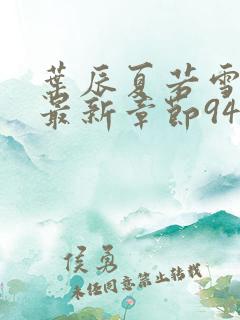 葉辰夏若雪
最新章節94
侯勇
未经同意禁止转载